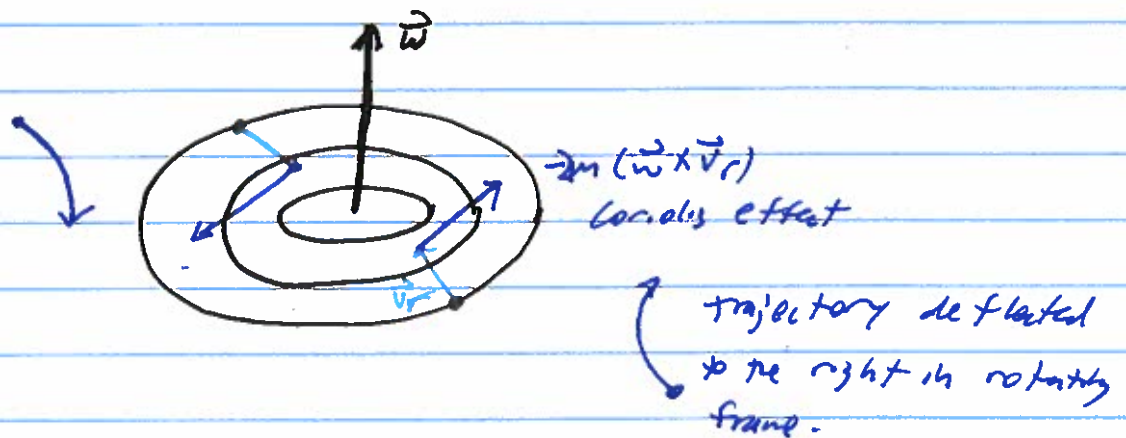 w⃗
-2m (w⃗ × v⃗r)
Coriolis effect
v⃗r
trajectory deflected
to the right in rotating
frame.